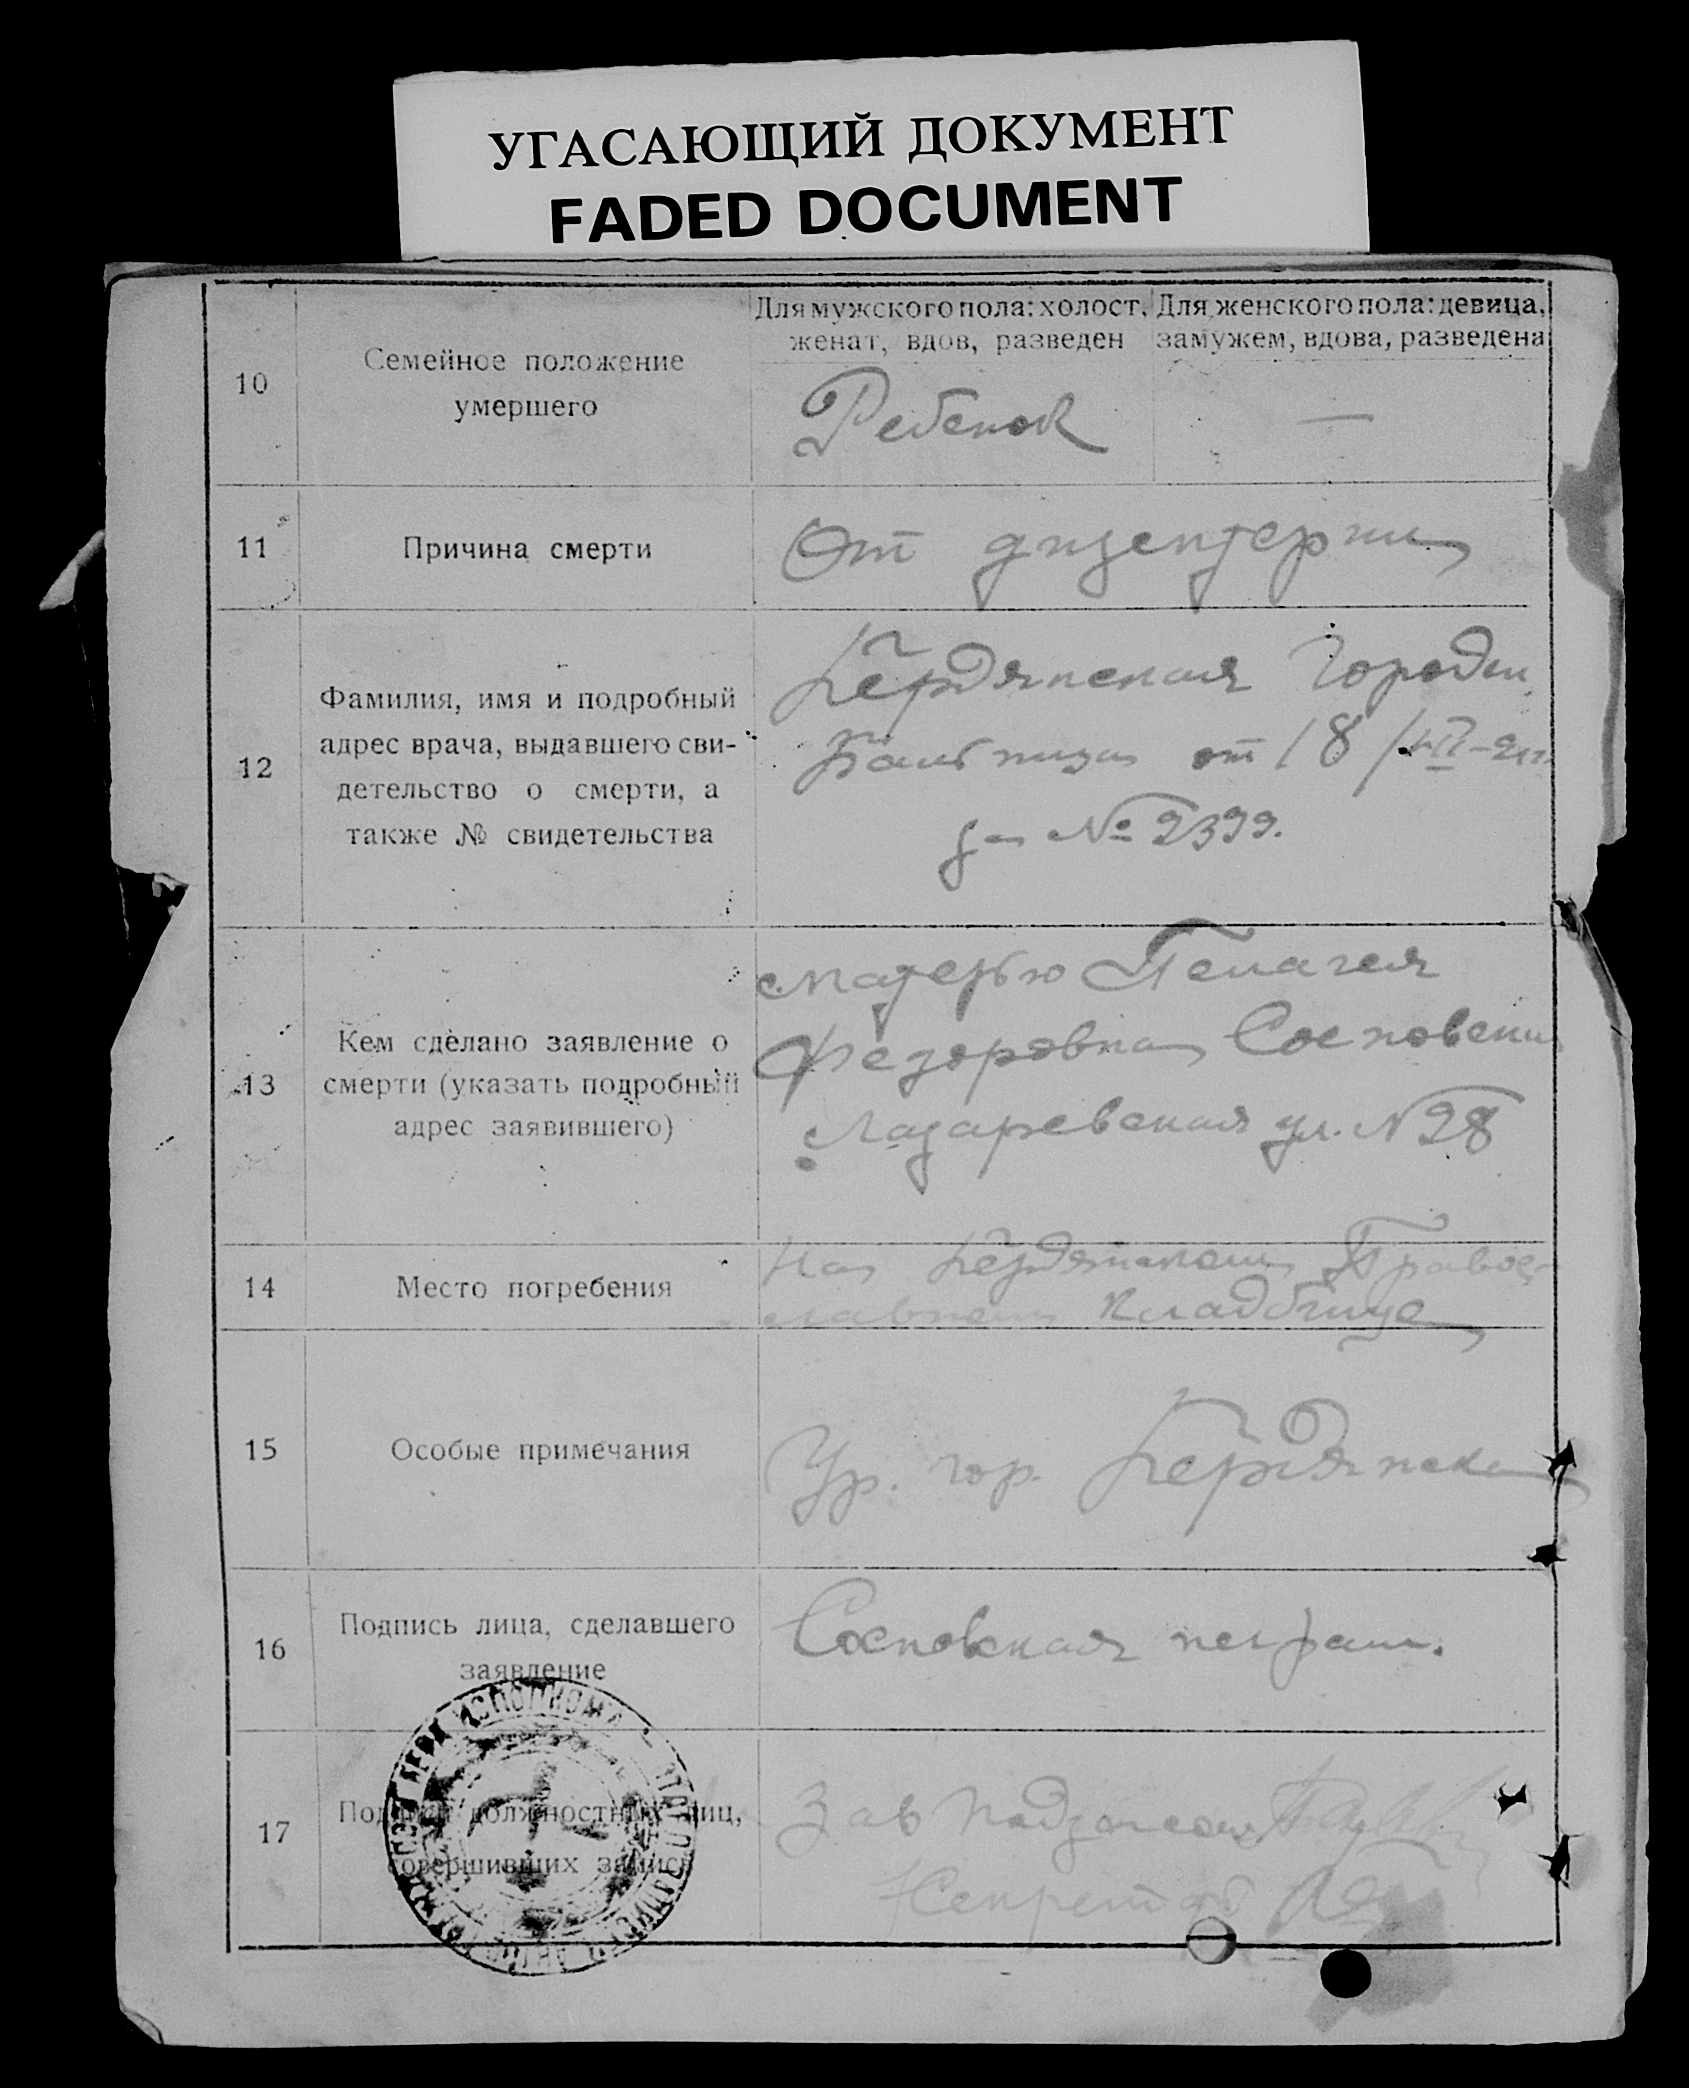 УГАСАЮЩИЙ ДОКУМЕНТ
FADED DOCUMENT
10
Семейное положение
умершего
Для мужского пола: холост,
женат, вдов, разведен
Для женского пола: девица,
замужем, вдова, разведена
Ребенок
—
11
Причина смерти
От дизентерии
12
Фамилия, имя и подробный
адрес врача, выдавшего сви-
детельство о смерти, а
также № свидетельства
Бердянская Городск
Больница от 18/VII
за № 2399.
13
Кем сделано заявление о
смерти (указать подробный
адрес заявившего)
Матерью Пелагея
Федоровна Сосновская
Лазаревская ул. N 28
14
Место погребения
На Бердянском Правос-
лавном кладбище
15
Особые примечания
Ур. гор. Бердянска
16
Подпись лица, сделавшего
заявление
Сосновская неграм.
17
Подписи должностных лиц,
совершивших запись
Зав Подзагсом
Секретарь